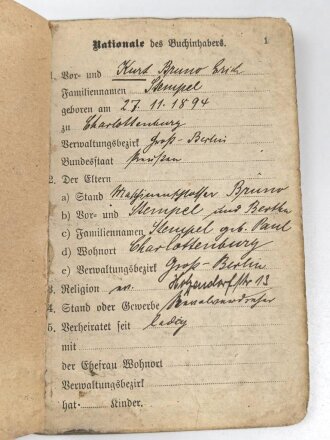 Nationale des Buchinhabers. 1
1. Vor- und Kurt Bruno Erich
Familiennamen Stempel
geboren am 27. 11. 1894
zu Charlottenburg
Verwaltungsbezirk Groß-Berlin
Bundesstaat Preußen
2. Der Eltern
a) Stand Maschinenschlosser Bruno
b) Vor- und Stempel und Bertha
c) Familiennamen Stempel geb. Paul
d) Wohnort Charlottenburg
e) Verwaltungsbezirk Groß-Berlin
3. Religion ev. str 13
4. Stand oder Gewerbe Revolverdreher
5. Verheiratet seit ledig
mit
der Ehefrau Wohnort
Verwaltungsbezirk
hat Kinder.